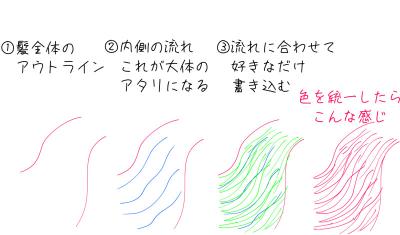 ①髪全体の
アウトライン
②内側の流れ
これが大体の
アタリになる
③流れに合わせて
好きなだけ
書き込む
色を統一したら
こんな感じ